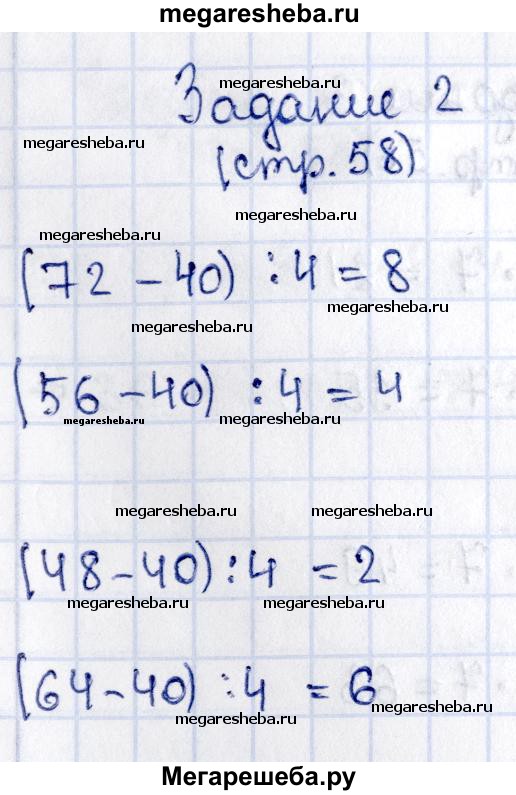 megaresheba.ru
Задание 2
megaresheba.ru
megaresheba.ru
(стр. 58)
megaresheba.ru
megaresheba.ru
(72 - 40) : 4 = 8
megaresheba.ru
megaresheba.ru
(56 - 40) : 4 = 4
megaresheba.ru
megaresheba.ru
megaresheba.ru
megaresheba.ru
(48 - 40) : 4 = 2
megaresheba.ru
megaresheba.ru
(64 - 40) : 4 = 6
megaresheba.ru
megaresheba.ru
Мегарешеба.ру